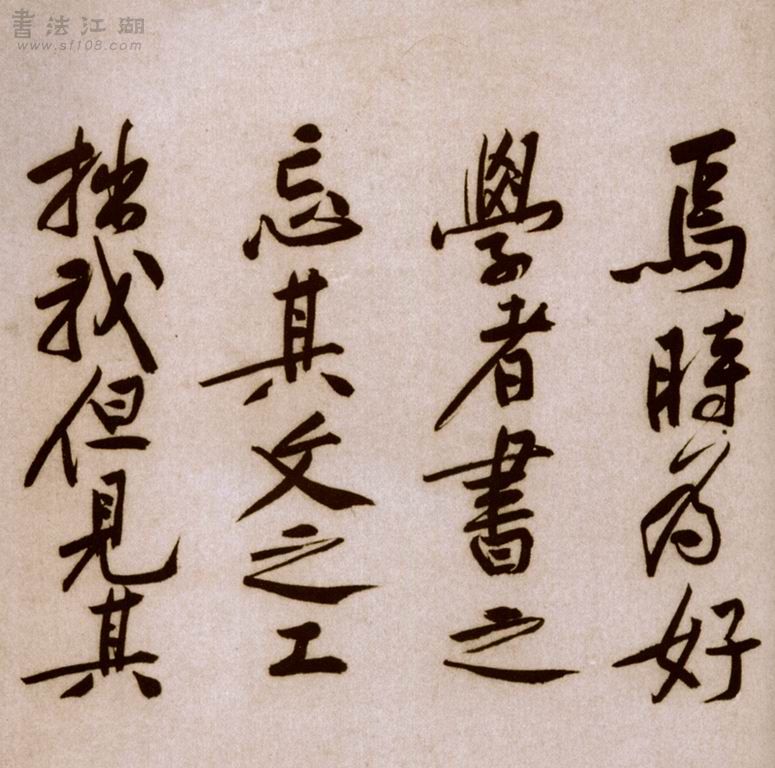 書法江湖
www.sf108.com
焉時爲好
學者書之
忘其文之工
拙我但見其